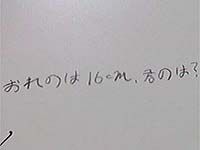 おれのは16cm、君のは?